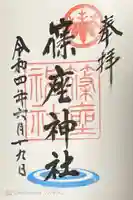 奉拝
篠座神社
令和四年六月十九日